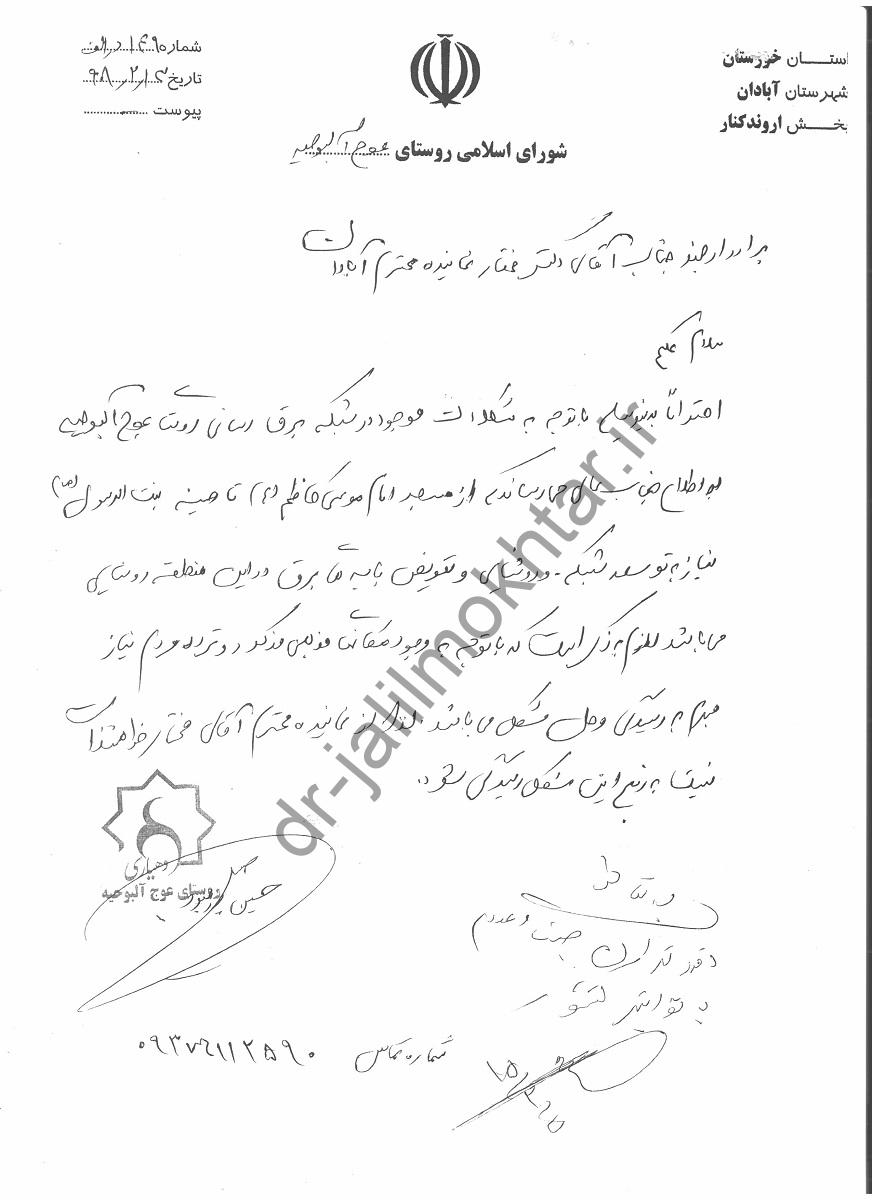 استان خوزستان
شهرستان آبادان
بخش اروندکنار
شماره
تاریخ ۹۸/۲/۳
پیوست
شورای اسلامی روستای عوج آلبوحیه
برادر ارجمند جناب آقای دکتر مختار نماینده محترم آبادان
سلام علیکم
احتراماً بدینوسیله با توجه به مشکلات موجود در شبکه برق رسانی روستای عوج آلبوحیه
به اطلاع جناب عالی می رساند که از مسجد امام موسی کاظم (ع) تا حسینیه بنت الرسول
نیاز به توسعه شبکه - روشنایی و تعویض پایه های برق در این منطقه روستایی
می باشد لازم به ذکر است که با توجه به وجود مکانهای مذهبی مذکور و تردد مردم نیاز
مبرم به رسیدگی و حل مشکل می باشد لذا از نماینده محترم آقای مختار خواهشمند است
نسبت به رفع این مشکل رسیدگی شود.
دهیاری
روستای عوج آلبوحیه
حسین
شماره تماس ۰۹۳۷۶۱۱۲۵۹۰
dr-jalilmokhtar.ir